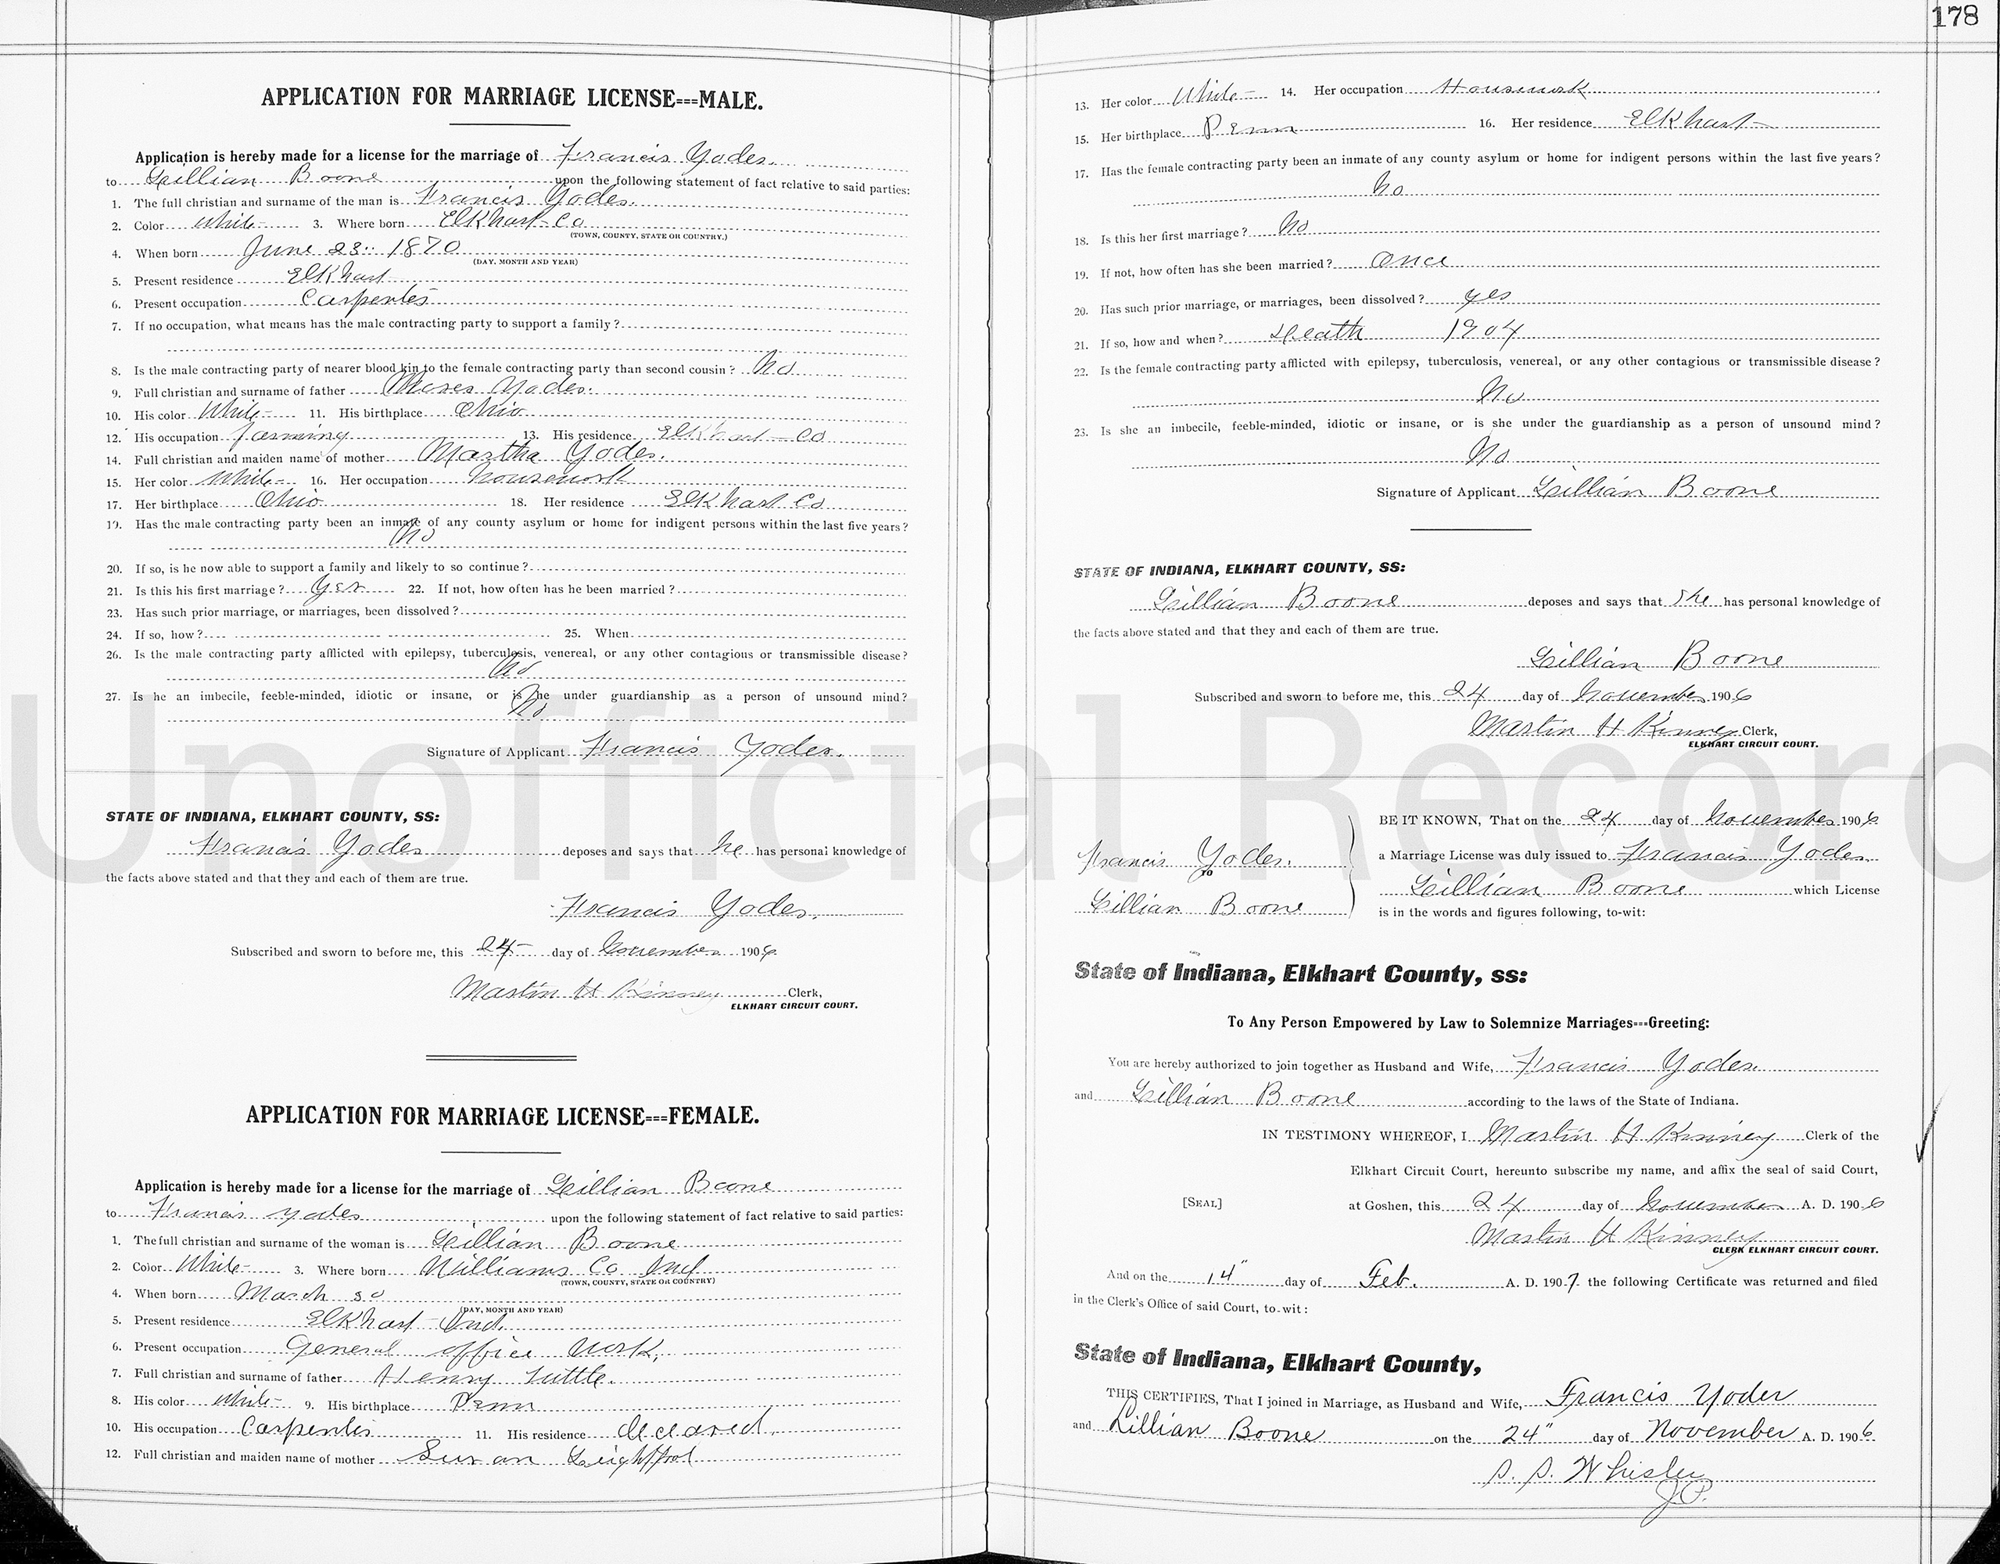 178
APPLICATION FOR MARRIAGE LICENSE===MALE.
Application is hereby made for a license for the marriage of Francis Yoder
to Lillian Boone upon the following statement of fact relative to said parties:
1. The full christian and surname of the man is Francis Yoder.
2. Color White 3. Where born Elkhart Co
(TOWN, COUNTY, STATE OR COUNTRY.)
4. When born June 23 1870
(DAY, MONTH AND YEAR)
5. Present residence Elkhart
6. Present occupation Carpenter
7. If no occupation, what means has the male contracting party to support a family?
8. Is the male contracting party of nearer blood kin to the female contracting party than second cousin? No
9. Full christian and surname of father Moses Yoder.
10. His color White 11. His birthplace Ohio
12. His occupation farming 13. His residence Elkhart Co
14. Full christian and maiden name of mother Martha Yoder.
15. Her color White 16. Her occupation housework
17. Her birthplace Ohio 18. Her residence Elkhart Co
19. Has the male contracting party been an inmate of any county asylum or home for indigent persons within the last five years?
No
20. If so, is he now able to support a family and likely to so continue?
21. Is this his first marriage? Yes 22. If not, how often has he been married?
23. Has such prior marriage, or marriages, been dissolved?
24. If so, how? 25. When
26. Is the male contracting party afflicted with epilepsy, tuberculosis, venereal, or any other contagious or transmissible disease?
No
27. Is he an imbecile, feeble-minded, idiotic or insane, or is he under guardianship as a person of unsound mind?
No
Signature of Applicant Francis Yoder.
STATE OF INDIANA, ELKHART COUNTY, SS:
Francis Yoder deposes and says that he has personal knowledge of
the facts above stated and that they and each of them are true.
Francis Yoder.
Subscribed and sworn to before me, this 24 day of November 1906
Martin H Kinney Clerk,
ELKHART CIRCUIT COURT.
APPLICATION FOR MARRIAGE LICENSE===FEMALE.
Application is hereby made for a license for the marriage of Lillian Boone
to Francis Yoder upon the following statement of fact relative to said parties:
1. The full christian and surname of the woman is Lillian Boone
2. Color White 3. Where born Williams Co Ind
(TOWN, COUNTY, STATE OR COUNTRY)
4. When born March 30
(DAY, MONTH AND YEAR)
5. Present residence Elkhart Ind.
6. Present occupation General office work,
7. Full christian and surname of father Henry Tuttle.
8. His color White 9. His birthplace Penn
10. His occupation Carpenter 11. His residence deceased.
12. Full christian and maiden name of mother Susan Leightfoot
13. Her color White 14. Her occupation Housework
15. Her birthplace Penn 16. Her residence Elkhart
17. Has the female contracting party been an inmate of any county asylum or home for indigent persons within the last five years?
No
18. Is this her first marriage? No
19. If not, how often has she been married? Once
20. Has such prior marriage, or marriages, been dissolved? yes
21. If so, how and when? Death 1904
22. Is the female contracting party afflicted with epilepsy, tuberculosis, venereal, or any other contagious or transmissible disease?
No
23. Is she an imbecile, feeble-minded, idiotic or insane, or is she under the guardianship as a person of unsound mind?
No
Signature of Applicant Lillian Boone
STATE OF INDIANA, ELKHART COUNTY, SS:
Lillian Boone deposes and says that she has personal knowledge of
the facts above stated and that they and each of them are true.
Lillian Boone
Subscribed and sworn to before me, this 24 day of November 1906
Martin H Kinney Clerk,
ELKHART CIRCUIT COURT.
Francis Yoder.
TO
Lillian Boone
BE IT KNOWN, That on the 24 day of November 1906
a Marriage License was duly issued to Francis Yoder
Lillian Boone which License
is in the words and figures following, to-wit:
State of Indiana, Elkhart County, ss:
To Any Person Empowered by Law to Solemnize Marriages===Greeting:
You are hereby authorized to join together as Husband and Wife, Francis Yoder.
and Lillian Boone according to the laws of the State of Indiana.
IN TESTIMONY WHEREOF, I Martin H Kinney Clerk of the
Elkhart Circuit Court, hereunto subscribe my name, and affix the seal of said Court,
[SEAL] at Goshen, this 24 day of November A. D. 1906
Martin H Kinney
CLERK ELKHART CIRCUIT COURT.
And on the 14" day of Feb. A. D. 1907. the following Certificate was returned and filed
in the Clerk's Office of said Court, to-wit:
State of Indiana, Elkhart County,
THIS CERTIFIES, That I joined in Marriage, as Husband and Wife, Francis Yoder
and Lillian Boone on the 24" day of November A. D. 1906
S. S. Whisler
J.P.
Unofficial Record